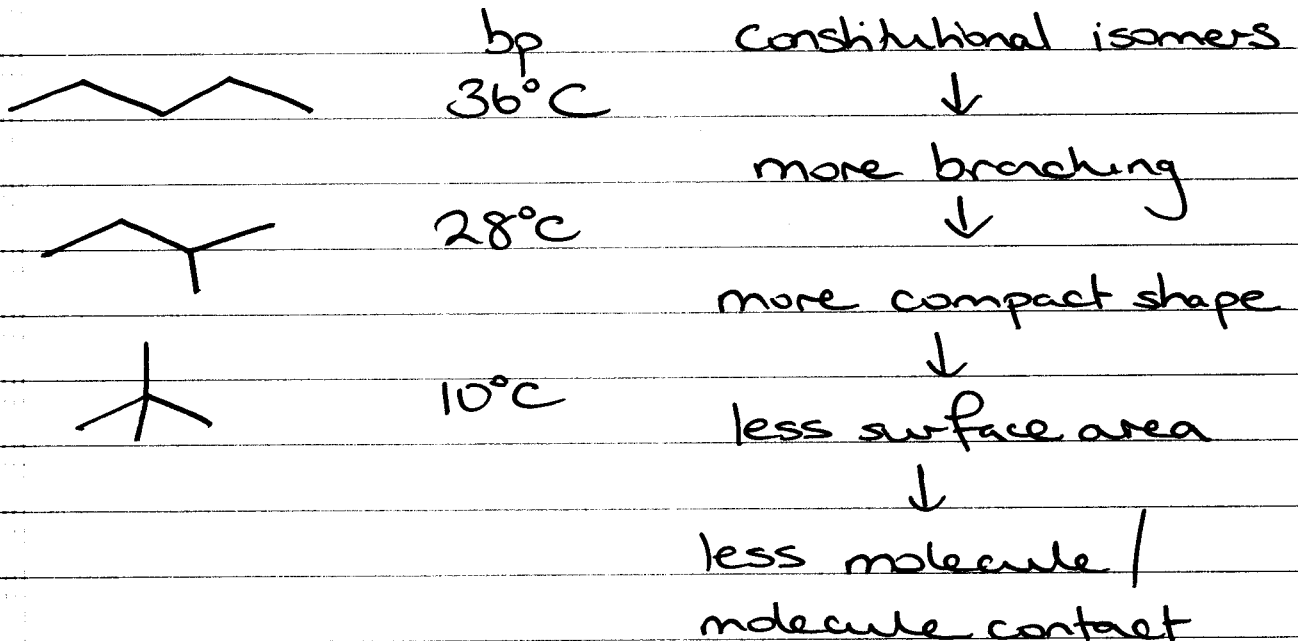 bp
constitutional isomers
36°C
↓
more branching
↓
28°C
more compact shape
↓
10°C
less surface area
↓
less molecule /
molecule contact